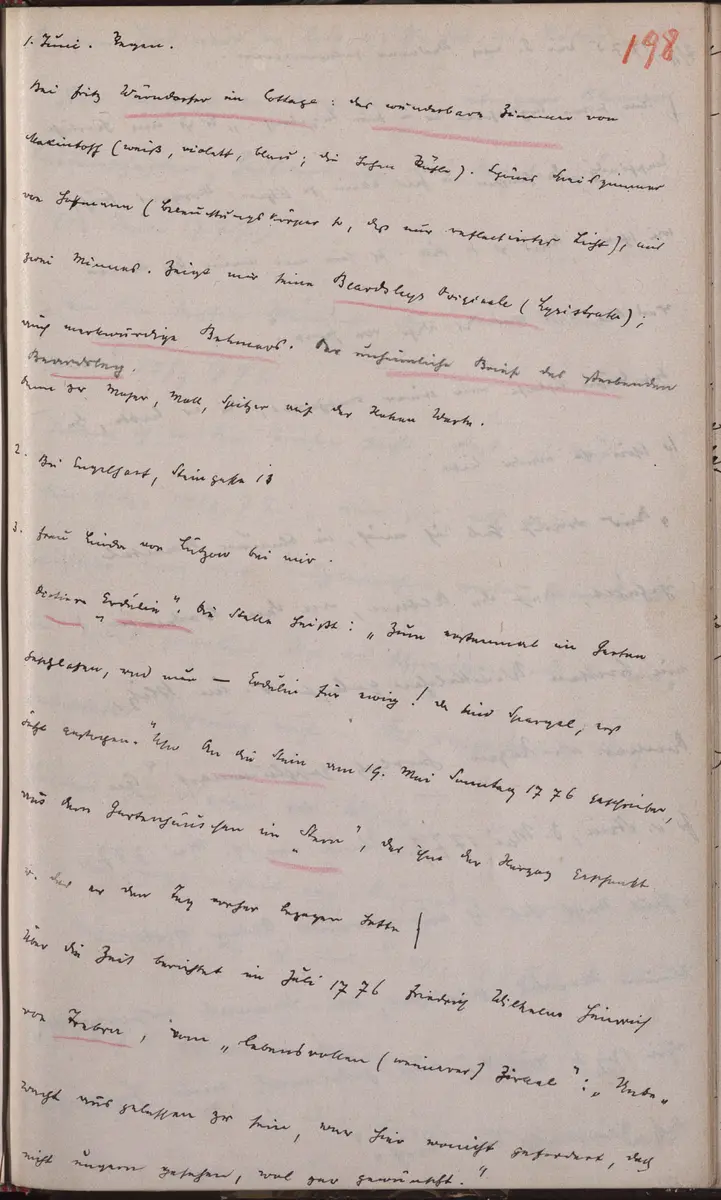 198
1. Juni. Regen.
Bei Fritz Wärndorfer im Cottage: das wunderbare Zimmer von
Makintosh (weiß, violett, blau; die hohen Stühle). Schönes Speiszimmer
von Hoffmann (Beleuchtungskörper so, daß nur reflectiertes Licht), mit
zwei Minnes. Zeigt mir seine Beardsleys Originale (Lysistrata);
auch merkwürdige Behmers. Der unheimliche Brief des sterbenden
Beardsley.
Dann zu Moser, Moll, Spitzer auf der Hohen Warte.
2. Bei Engelhart, Steingasse 13
3. Frau Linda von Lützow bei mir.
„Erdulin". Die Stelle heißt: „Zum erstenmal im Garten
geschlafen, und nun — Erdulin für ewig! Da sind Spargel, erst
jetzt gestochen." An die Stein am 19. Mai Sonntag 1776 geschrieben,
aus dem Gartenhäuschen im „Stern", das ihm der Herzog geschenkt
u. das er den Tag vorher bezogen hatte
Über die Zeit berichtet im Juli 1776 Friedrich Wilhelm Heinrich
von Trebra, vom „lebensvollen (weimarer) Zirkel": „Unbe„
wacht ausgelassen zu sein, war hier wonicht gefordert, doch
nicht ungern gesehen, wol gar gewünscht."